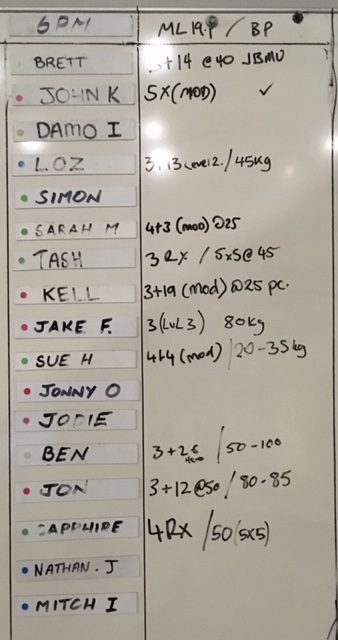 6PM ML19.P / BP
BRETT 3+14 @40 JBMU
JOHN K 5X(MOD) ✓
DAMO I
LOZ 3+13 Level 2. / 45kg
SIMON
SARAH M 4+3 (mod) @25
TASH 3 RX / 5x5@ 45
KELL 3+19 (mod) @25 pc.
JAKE F. 3 (LVL 3) 80kg
SUE H 4+4 (mod) / 20-35kg
JONNY O
JODIE
BEN 3+26 / 50-100
JON 3+12 @50 / 80-85
SAPPHIRE 4RX / 50 (5x5)
NATHAN. J
MITCH I